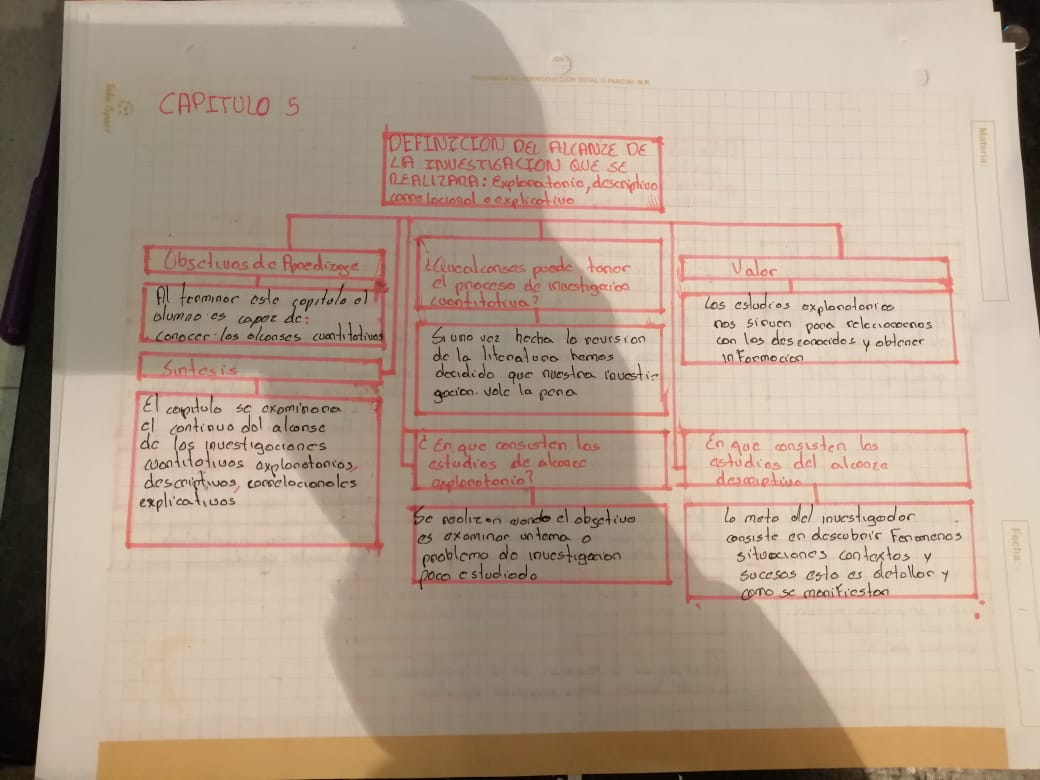 CAPITULO 5
DEFINICION DEL ALCANZE DE
LA INVESTIGACION QUE SE
REALIZARA: Exploratorio, descriptivo
correlacional o explicativo
Objetivos de Aprendizage
Al terminar este capitulo el
alumno es capaz de:
conocer: los alcanses cuantitativos
Sintesis
El capitulo se examinara
el continuo del alcanse
de las investigaciones
cuantitativas exploratorios,
descriptivos, correlacionales
explicativos
¿Que alcanses puede tener
el proceso de investigacion
cuantitativa?
Si una vez hecha la revision
de la literatura hemos
decidido que nuestra investi-
gacion. vale la pena
¿En que consisten los
estudios de alcance
exploratorio?
Se realizan cuando el objetivo
es examinar un tema o
problema de investigacion
poco estudiado
Valor
Los estudios exploratorios
nos sirven para relacionarnos
con los desconocidos y obtener
informacion
En que consisten los
estudios del alcanze
descriptivo
La meta del investigador
consiste en descubrir Fenomenos
situaciones contextos y
sucesos esto es detallar y
como se manifiestan
Materia:
Fecha: